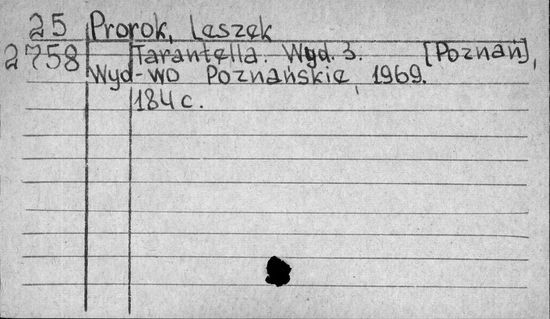 25 Prorok, Leszek
2758 Tarantella. Wyd. 3. [Poznań],
Wyd-wo Poznańskie, 1969.
184 c.